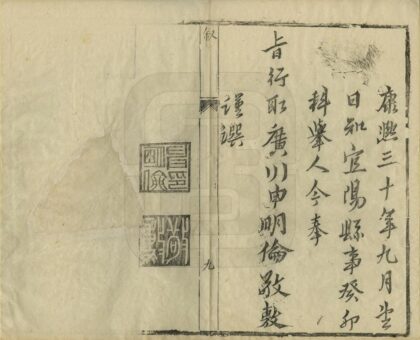 康熙三十年九月望
日知宜陽縣事癸卯
科舉人今奉
旨行取廣川申明倫敬敷
謹撰
叙
九